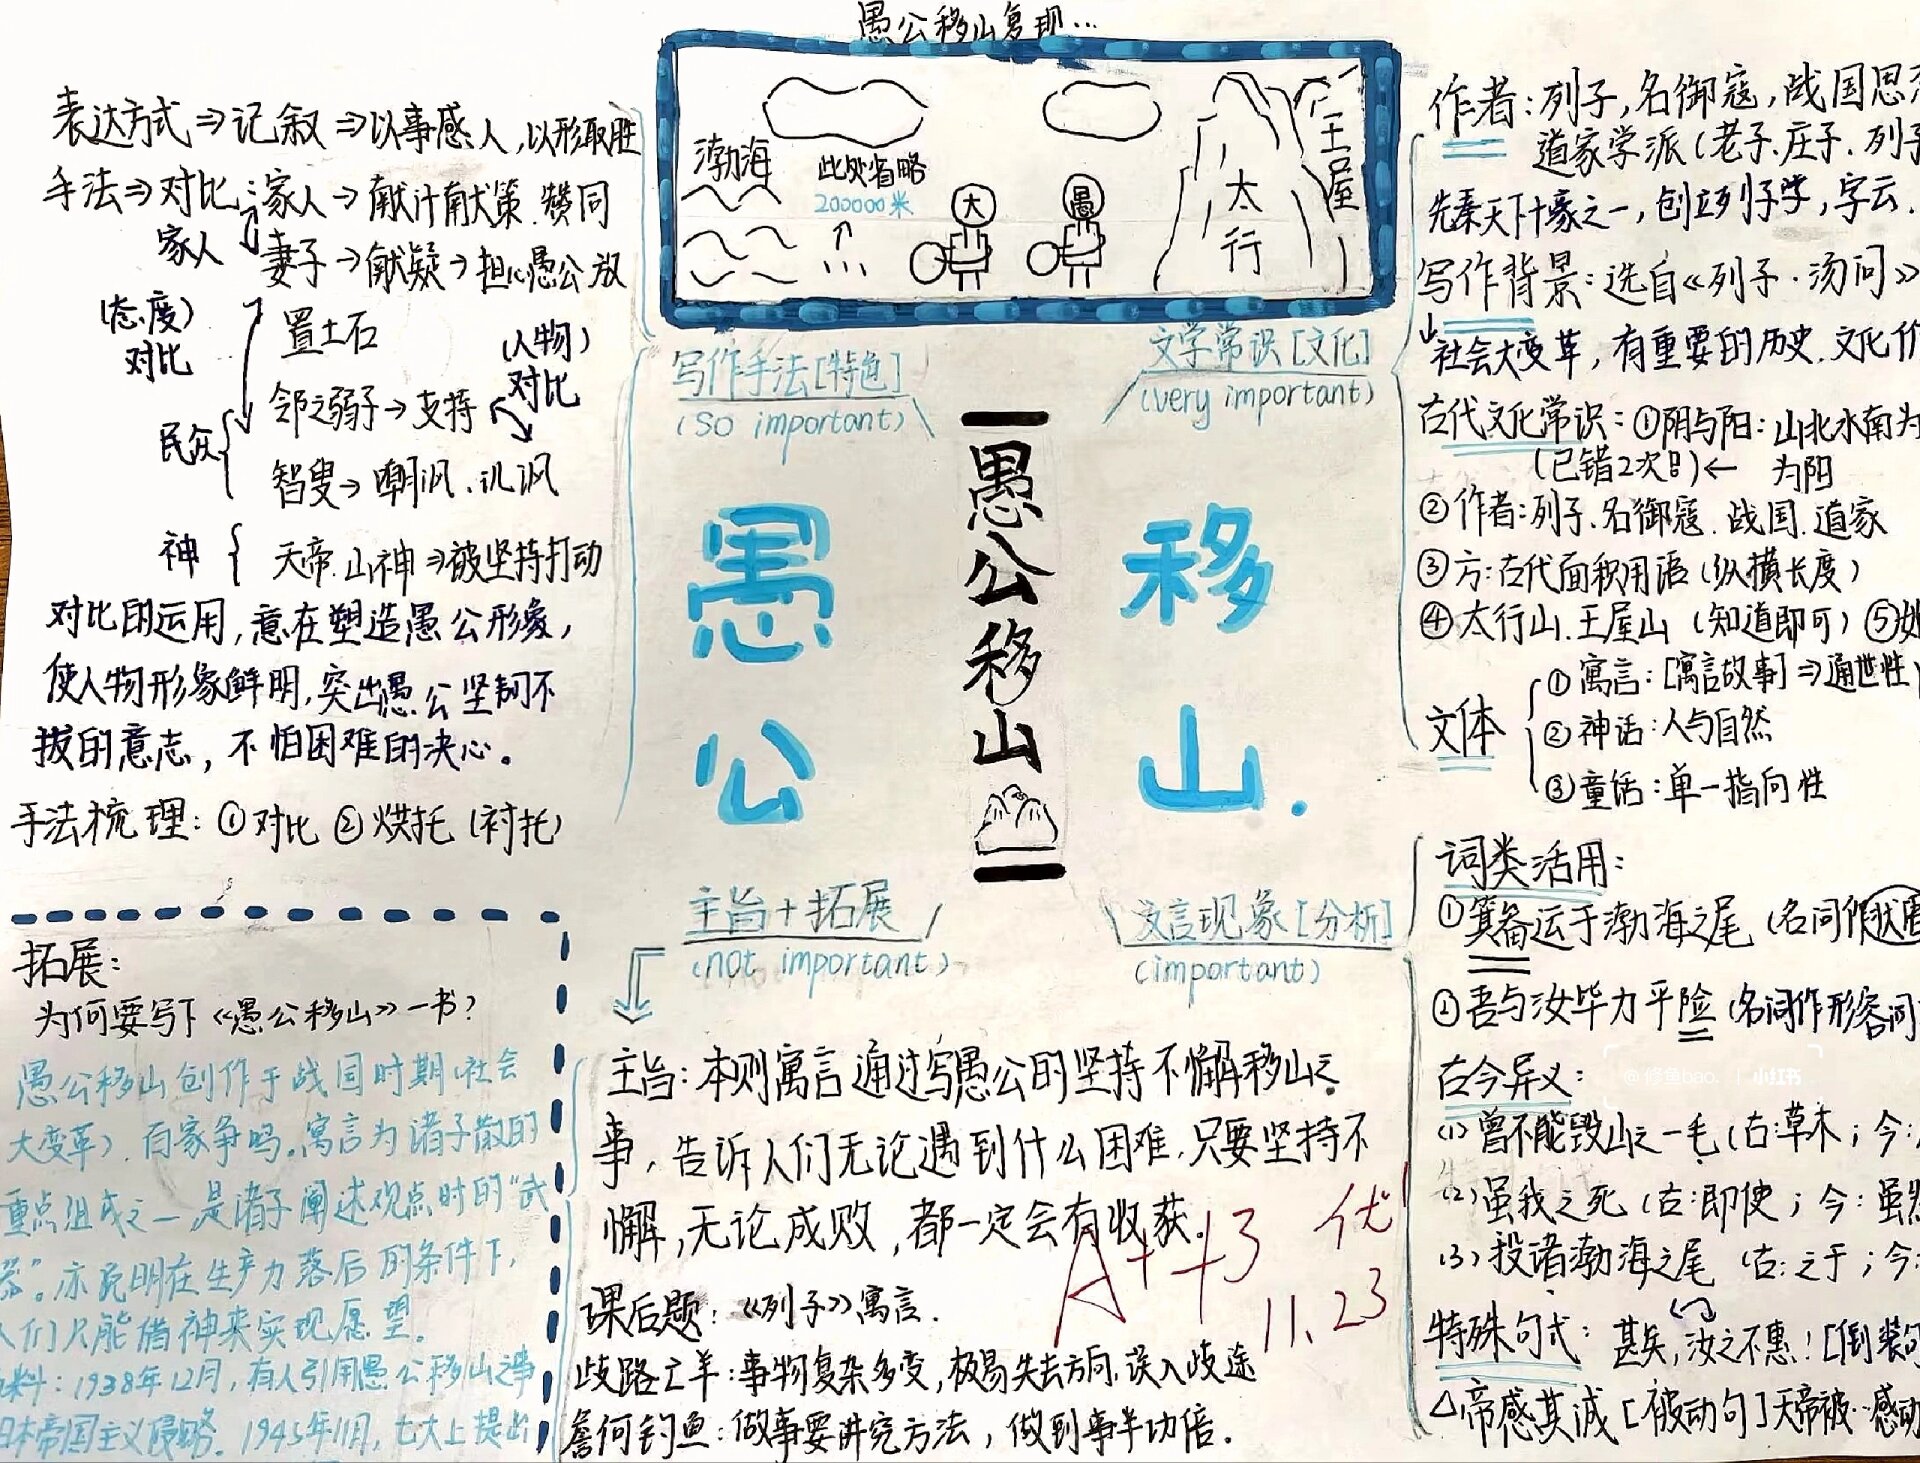 愚公移山复现…
渤海
此处省略
200000米
大
愚
太行
王屋
表达方式⇒记叙⇒以事感人，以形取胜
手法⇒对比：家人→献计献策.赞同
家人
妻子→献疑→担心愚公放
(态度)
对比
置土石
(人物)
对比
邻之弱子→支持
民众
智叟→嘲讽.讥讽
神
天帝.山神⇒被坚持打动
对比的运用，意在塑造愚公形象，
使人物形象鲜明，突出愚公坚韧不
拔的意志，不怕困难的决心。
手法梳理：①对比 ②烘托（衬托）
写作手法[特色]
(so important)
文学常识[文化]
(very important)
愚公移山
愚公
移山.
主旨+拓展
(not important)
文言现象[分析]
(important)
作者：列子，名御寇，战国思
道家学派（老子.庄子.列子
先秦天下十豪之一，创立列子学，字云.
写作背景：选自《列子·汤问》
社会大变革，有重要的历史.文化
古代文化常识：①阴与阳：山北水南为
(已错2次!!)← 为阳
②作者：列子.名御寇.战国.道家
③方：古代面积用语（纵横长度）
④太行山.王屋山（知道即可）⑤
文体
①寓言：[寓言故事]⇒通世性
②神话：人与自然
③童话：单一指向性
词类活用：
①箕畚运于渤海之尾（名词作状语
②吾与汝毕力平险（名词作形容词
古今异义：
(1)曾不能毁山之一毛（古：草木；今：
(2)虽我之死（古：即使；今：虽然
(3)投诸渤海之尾（古：之于；今：
特殊句式：甚矣，汝之不惠！[倒装句
△帝感其诚[被动句]天帝被…感动
拓展：
为何要写下《愚公移山》一书？
愚公移山创作于战国时期（社会
大变革）.百家争鸣。寓言为诸子散的
重点组成之一.是诸子阐述观点时的“武
器”。亦说明在生产力落后的条件下，
人们只能借神来实现愿望。
料：1938年12月，有人引用愚公移山之事
日本帝国主义侵略。1945年11月，七大上提出
主旨：本则寓言通过写愚公的坚持不懈移山之
事，告诉人们无论遇到什么困难，只要坚持不
懈，无论成败，都一定会有收获。
课后题：《列子》寓言.
歧路亡羊：事物复杂多变，极易失去方向，误入歧途
詹何钓鱼：做事要讲究方法，做到事半功倍。
A++3 优
11.23
@修鱼bao. | 小红书